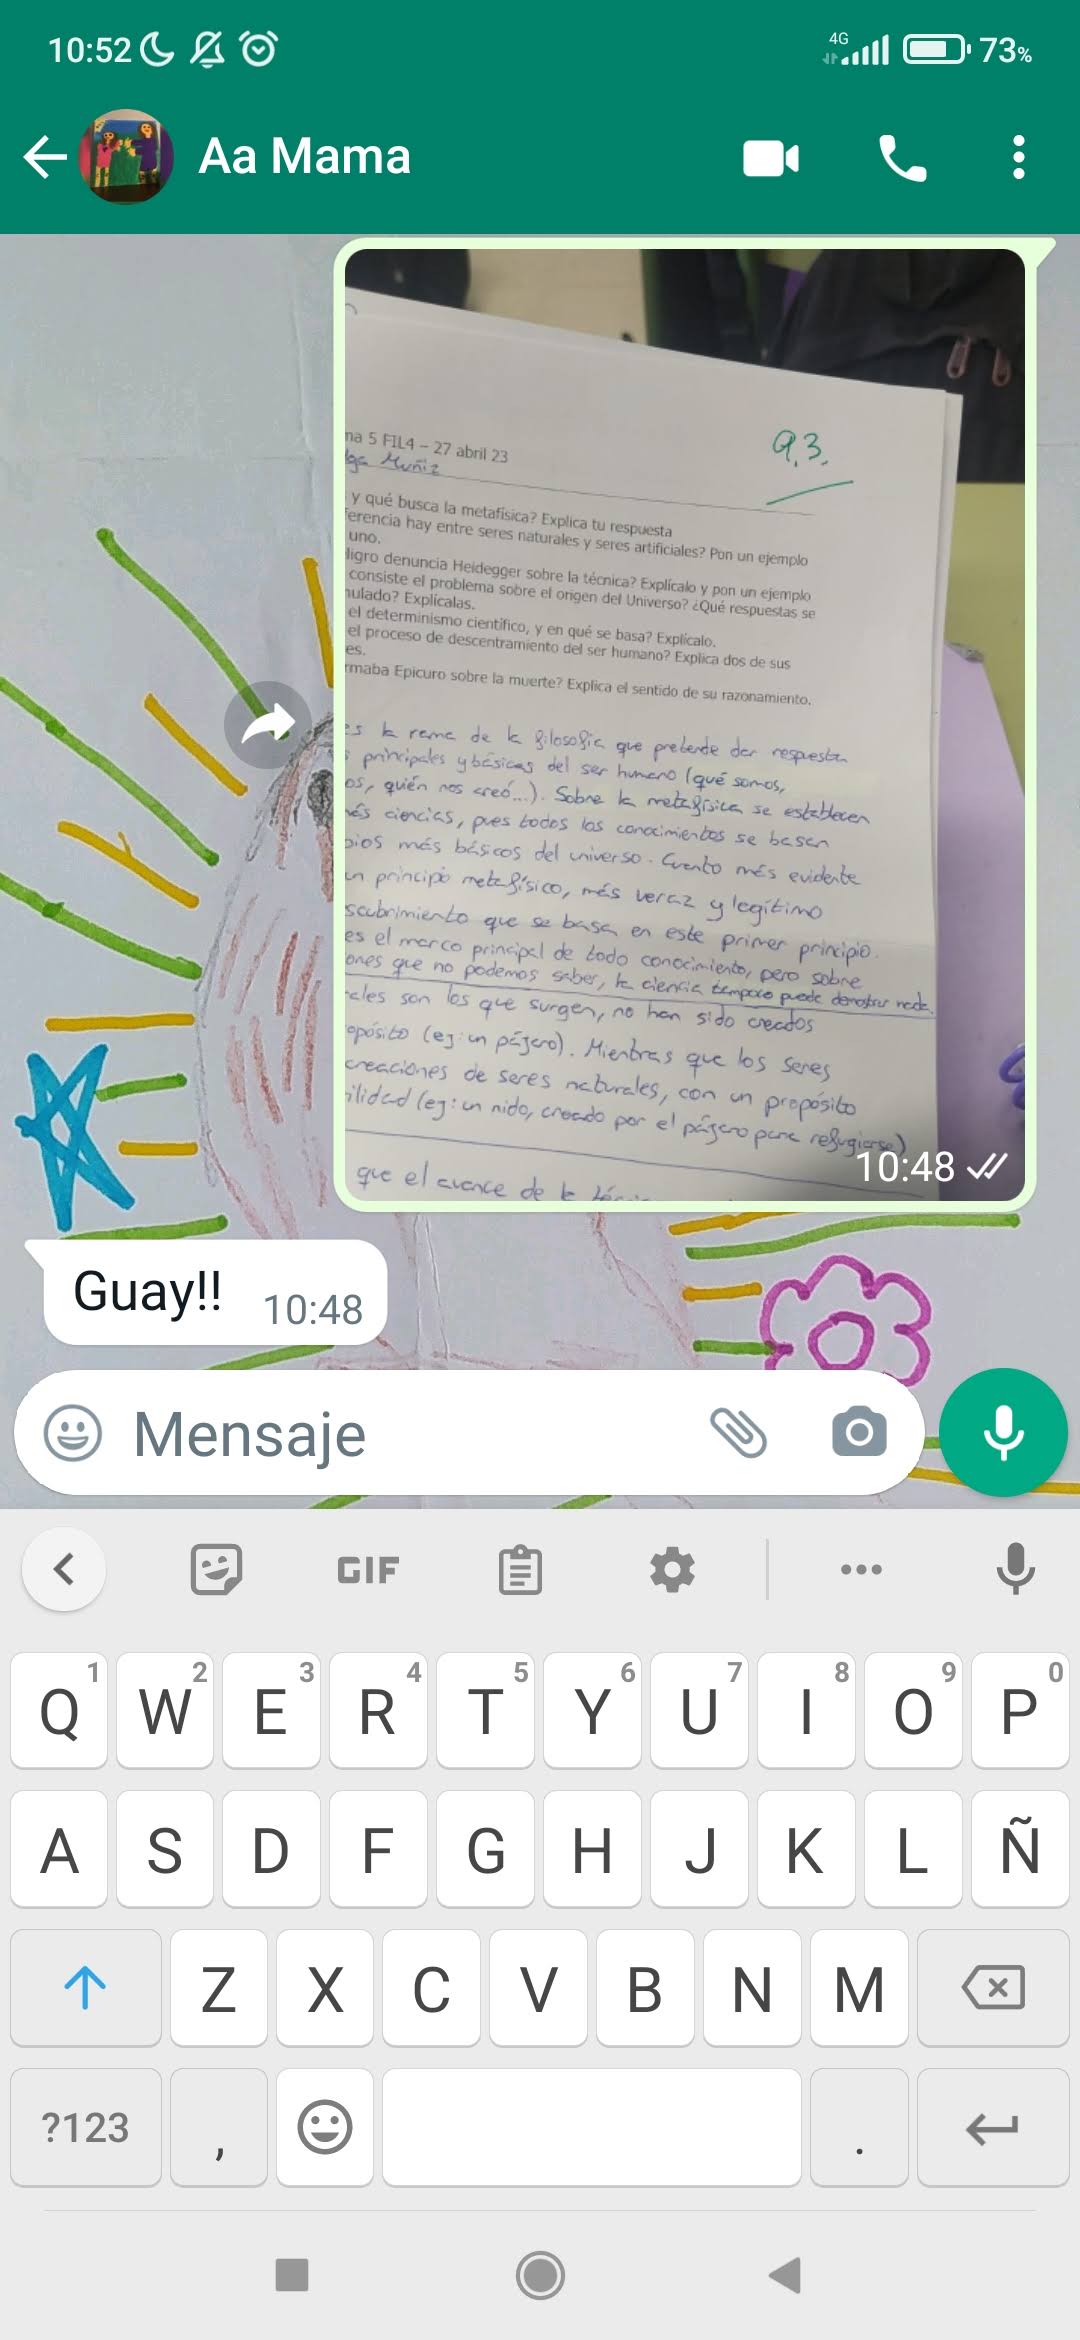 10:52
4G
73%
Aa Mama
na 5 FIL4 – 27 abril 23
9.3.
lga Muñiz
y qué busca la metafísica? Explica tu respuesta
ferencia hay entre seres naturales y seres artificiales? Pon un ejemplo
uno.
ligro denuncia Heidegger sobre la técnica? Explícalo y pon un ejemplo
consiste el problema sobre el origen del Universo? ¿Qué respuestas se
nulado? Explícalas.
el determinismo científico, y en qué se basa? Explícalo.
el proceso de descentramiento del ser humano? Explica dos de sus
es.
rmaba Epicuro sobre la muerte? Explica el sentido de su razonamiento.
es la rama de la filosofía que pretende dar respuesta
principales y básicas del ser humano (qué somos,
os, quién nos creó...). Sobre la metafísica se establecen
más ciencias, pues todos los conocimientos se basan
pios más básicos del universo. Cuanto más evidente
un principio metafísico, más veraz y legítimo
scubrimiento que se basa en este primer principio.
es el marco principal de todo conocimiento, pero sobre
ones que no podemos saber, la ciencia tampoco puede demostrar nada.
rales son los que surgen, no han sido creados
opósito (ej: un pájaro). Mientras que los seres
creaciones de seres naturales, con un propósito
ilidad (ej: un nido, creado por el pájaro para refugiarse)
que el avance de la
10:48
Guay!! 10:48
Mensaje
GIF
1 2 3 4 5 6 7 8 9 0
Q W E R T Y U I O P
A S D F G H J K L Ñ
Z X C V B N M
?123 , .